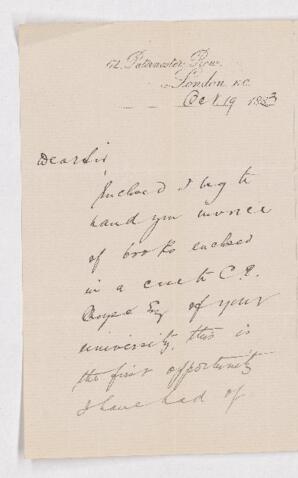 Paternoster Row,
London E.C.
Oct 19 1883
Dear Sir
Inclosed I beg to
hand you invoice
of books enclosed
in a case to C.
Esq of your
university, this is
the first opportunity
I have had of